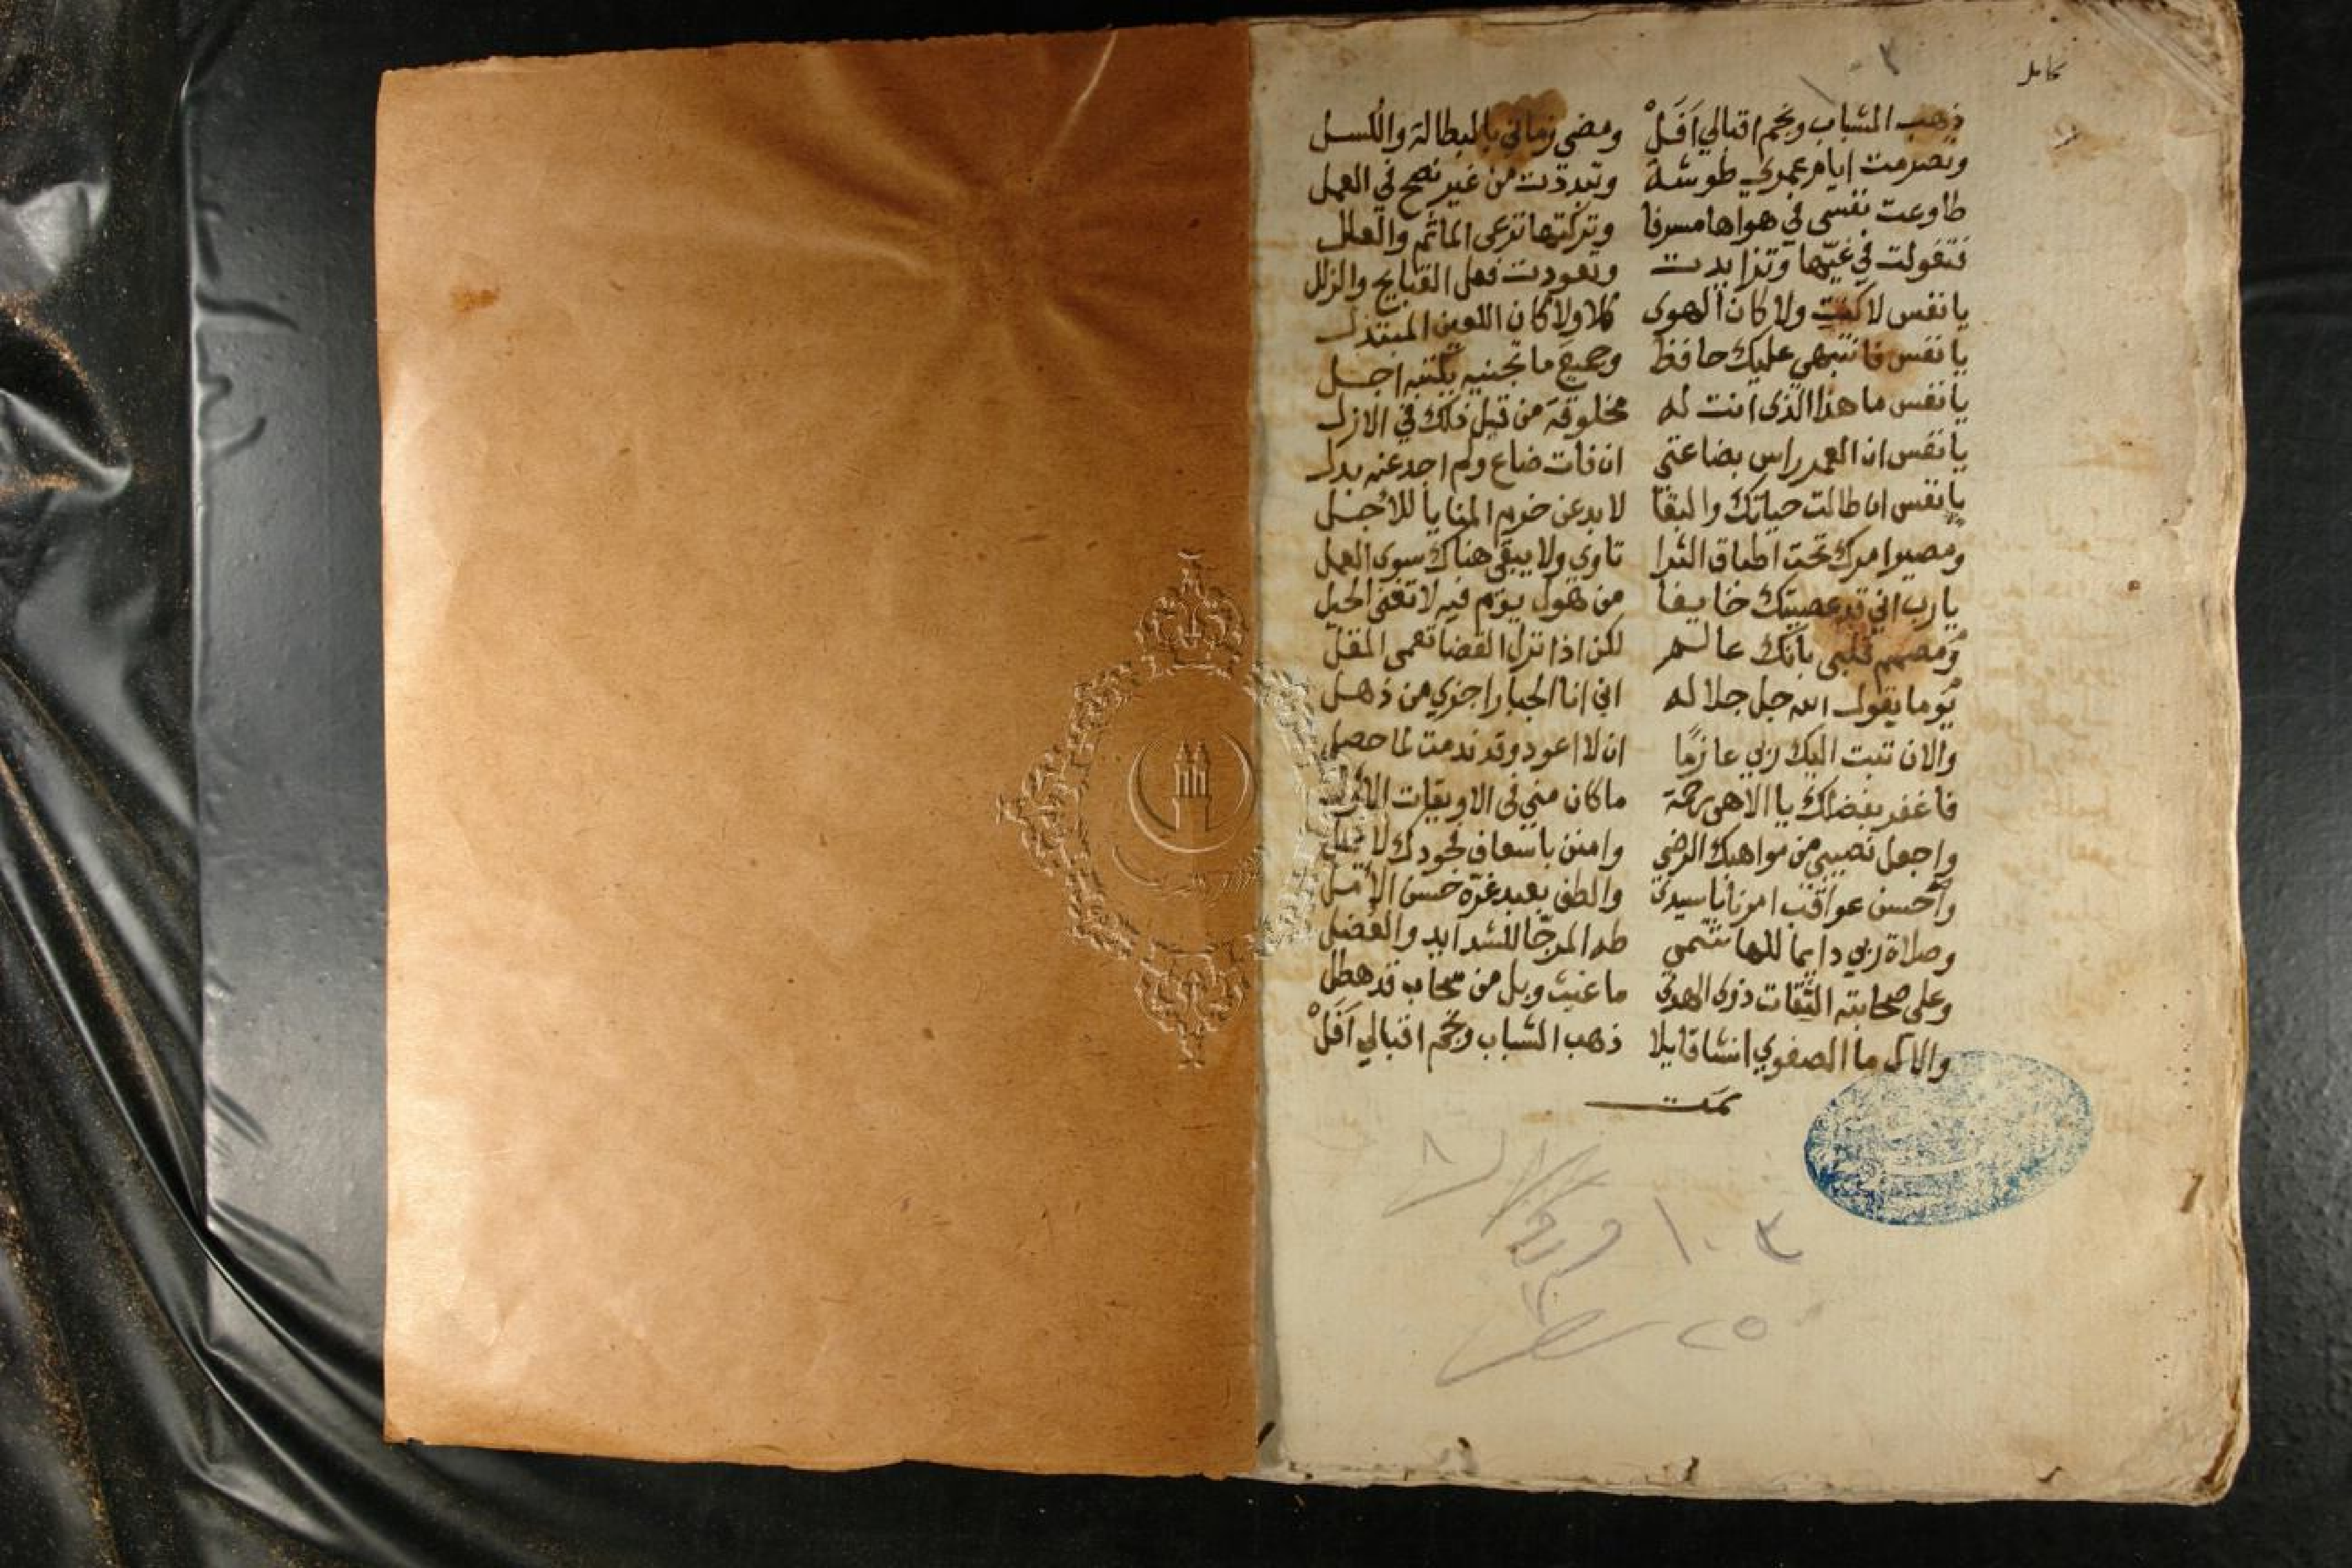 كامل
١٠٣
ذهب الشباب ونجم اقبالي اَفَلْ ومضى زماني بالبطالة والكسل
وتصرمت ايام عمري طوشة وتبددت من غير نصح في العمل
طاوعت نفسي في هواها مسرفا وتركتها ترعى المآثم والعلل
فتغولت في غيّها وتزايدت وتعودت فعل القبايح والزلل
يا نفس لا كنتِ ولا كان الهوى كلا ولا كان اللعين المبتذل
يا نفس فانتبهي عليك حافظ وجميعَ ما تجنيه يكتبه اجل
يا نفس ما هذا الذى انت له مخلوقة من قبل ذلك في الازل
يا نفس ان العمر راس بضاعتي ان فات ضاع ولم اجد عنه بدل
يا نفس ان طالت حياتك والبقا لا بد عن المنايا للأجل
ومصير امرك تحت اطباق الثرا تاوي ولا يبقى هناك سوى العمل
يا رب اني قد عصيتك خايفا من هول يوم فيه لا تغنى الحيل
ومصمم قلبي بأنك عالم لكن اذا نزل القضا تعمى المقل
يوما يقول الله جل جلاله اني انا الجبار اجزي من ذهل
والان تبت اليك ربي عازمًا ان لا اعود وقد ندمت لما حصل
فاغفر بفضلك يا الاهى رحمة ما كان مني في الاويقات الأول
واجعل نصيبي من مواهبك الرضي وامنن باسعاف لجودك
وأحسن عواقب امرنا يا سيدي والطف بعبد غرّه حسن الأمل
وصلاة ربي دايما للهاشمي طه المرجّا للشدايد والفضل
وعلى صحابته الثقات ذوى الهدى ما غيث وبل من سحاب قد هطل
والال ما الصفوي انشا قايلا ذهب الشباب ونجم اقبالي اَفَلْ
تمت
١٠٣
٢٥